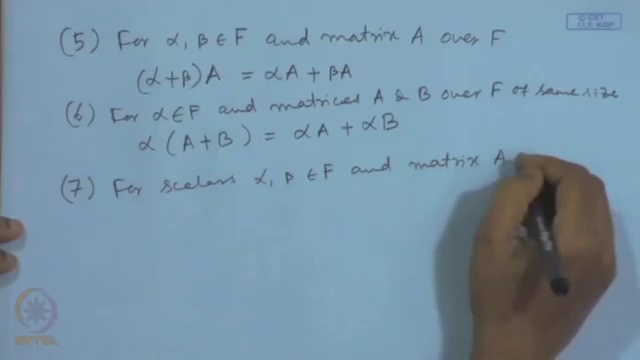 (5) For α, β ∈ F and matrix A over F
(α+β)A = αA + βA
(6) For α∈F and matrices A & B over F of same size
α (A+B) = αA + αB
(7) For scalars α, β ∈ F and matrix A
NPTEL